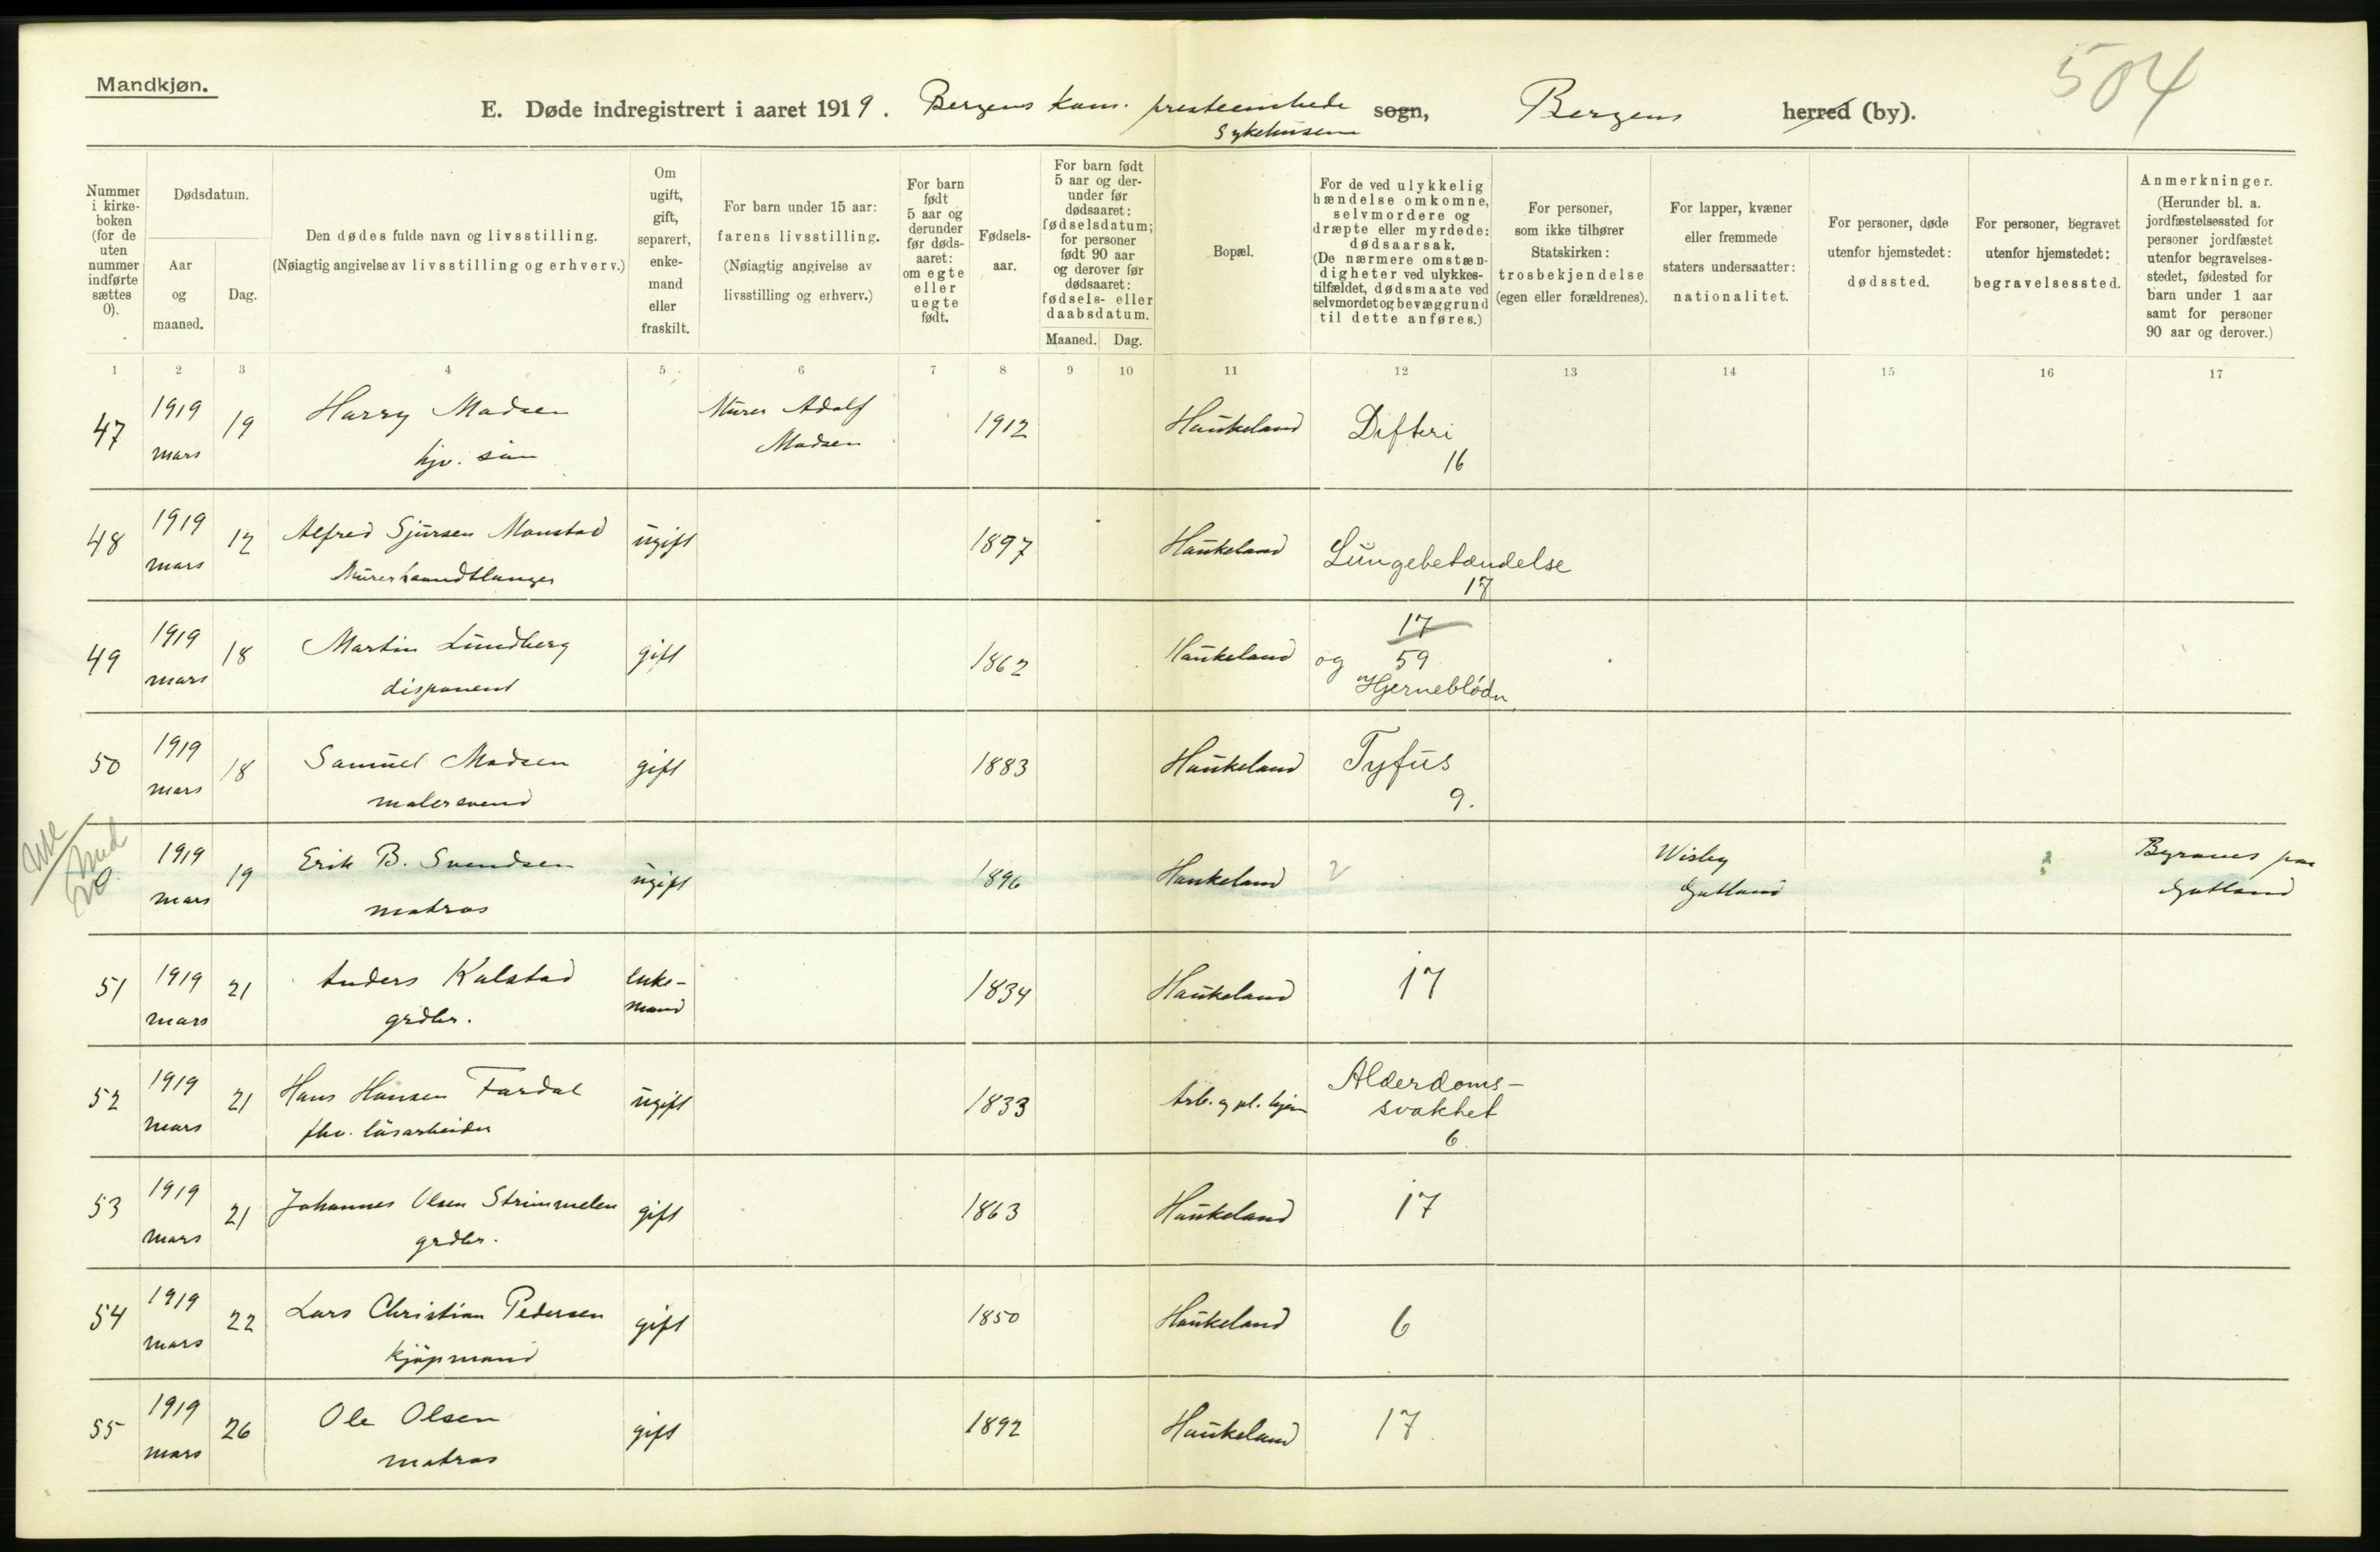 Mandkjøn.
504
E. Døde indregistrert i aaret 1919. Bergens kom. presteembede sogn, Bergens herred (by).
Sykehusene
Nummer i kirkeboken (for de uten nummer indførte sættes 0).
Dødsdatum.
Aar og maaned.
Dag.
Den dødes fulde navn og livsstilling.
(Nøiagtig angivelse av livsstilling og erhverv.)
Om ugift, gift, separert, enkemand eller fraskilt.
For barn under 15 aar: farens livsstilling.
(Nøiagtig angivelse av livsstilling og erhverv.)
For barn født 5 aar og derunder før dødsaaret: om egte eller uegte født.
Fødselsaar.
For barn født 5 aar og derunder før dødsaaret: fødselsdatum; for personer født 90 aar og derover før dødsaaret: fødsels- eller daabsdatum.
Maaned. Dag.
Bopæl.
For de ved ulykkelig hændelse omkomne, selvmordere og dræpte eller myrdede: dødsaarsak.
(De nærmere omstændigheter ved ulykkestilfældet, dødsmaate ved selvmordet og bevæggrund til dette anføres.)
For personer, som ikke tilhører Statskirken: trosbekjendelse (egen eller forældrenes).
For lapper, kvæner eller fremmede staters undersaatter: nationalitet.
For personer, døde utenfor hjemstedet: dødssted.
For personer, begravet utenfor hjemstedet: begravelsessted.
Anmerkninger.
(Herunder bl. a. jordfæstelsessted for personer jordfæstet utenfor begravelsesstedet, fødested for barn under 1 aar samt for personer 90 aar og derover.)
1 2 3 4 5 6 7 8 9 10 11 12 13 14 15 16 17
47 1919 mars 19 Harry Madsen Murer Adolf Madsen 1912 Haukeland Difteri
hjv. søn 16
48 1919 mars 12 Alfred Sjursen Monstad ugift 1897 Haukeland Lungebetændelse
Murerhaandtlanger 17
49 1919 mars 18 Martin Lundberg gift 1862 Haukeland 17 og 59
disponent Hjerneblødn.
50 1919 mars 18 Samuel Madsen gift 1883 Haukeland Tyfus
malersvend 9.
1919 mars 19 Erik B. Svendsen ugift 1896 Haukeland 2 Wisby Gotland Byranes paa Gotland
matros
51 1919 mars 21 Anders Kalstad enkemand 1834 Haukeland 17
grdbr.
52 1919 mars 21 Hans Hansen Fardal ugift 1833 Arb. og pl. hjem Alderdoms-
fhv. løsarbeider svakhet
6.
53 1919 mars 21 Johannes Olsen Strimmelen gift 1863 Haukeland 17
grdbr.
54 1919 mars 22 Lars Christian Pedersen gift 1850 Haukeland 6
kjøpmand
55 1919 mars 26 Ole Olsen gift 1892 Haukeland 17.
matros